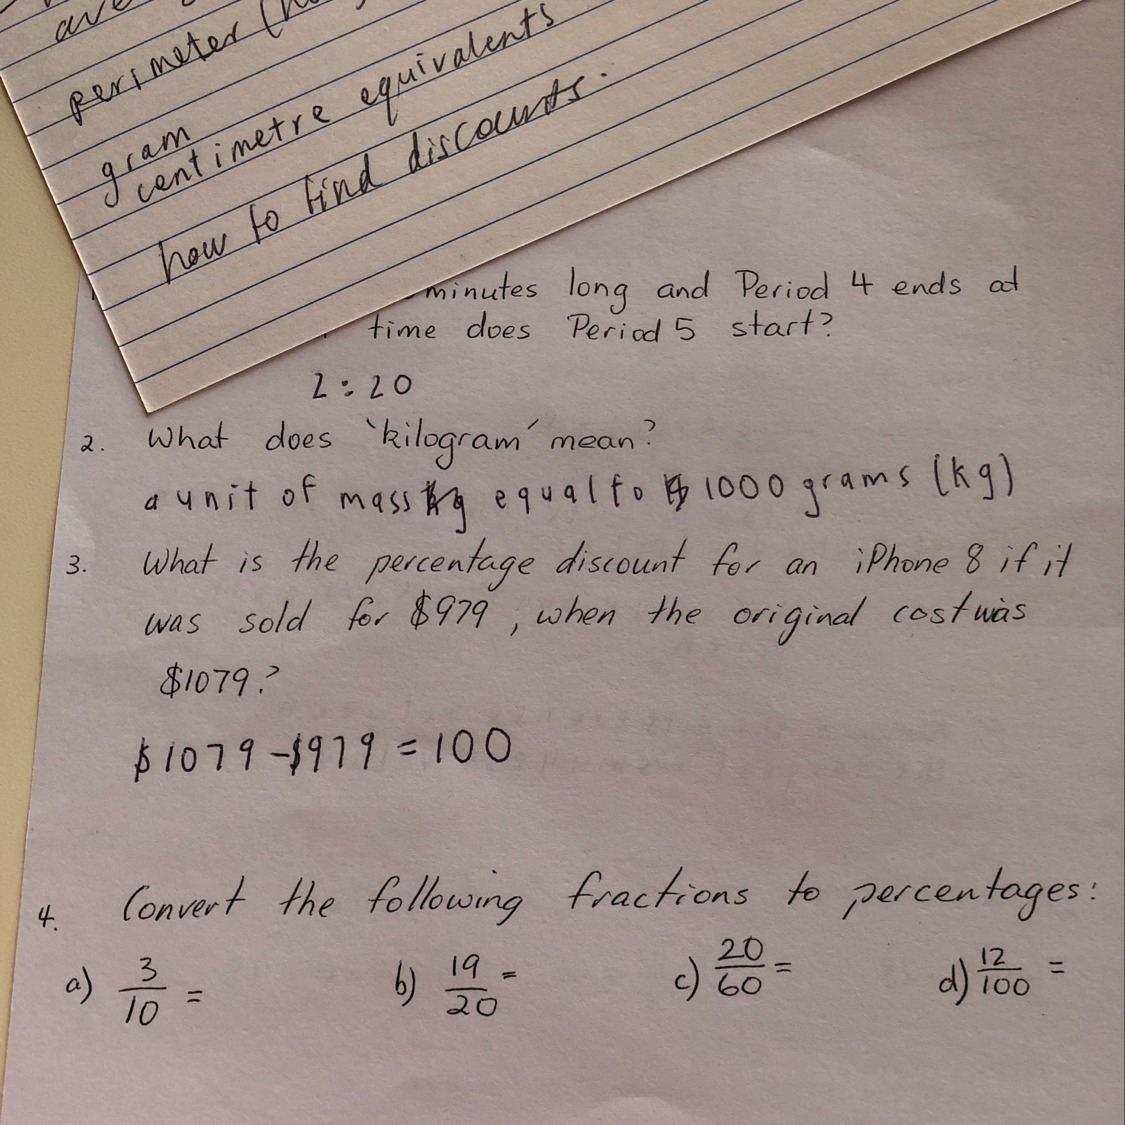 perimeter
gram
centimetre equivalents
how to find discounts.
minutes long and Period 4 ends at
time does Period 5 start?
2:20
2. What does 'kilogram' mean?
a unit of mass equal to 1000 grams (kg)
3. What is the percentage discount for an iPhone 8 if it
was sold for $979, when the original cost was
$1079?
$1079 - $979 = 100
4. Convert the following fractions to percentages:
a) 3/10 = b) 19/20 = c) 20/60 = d) 12/100 =